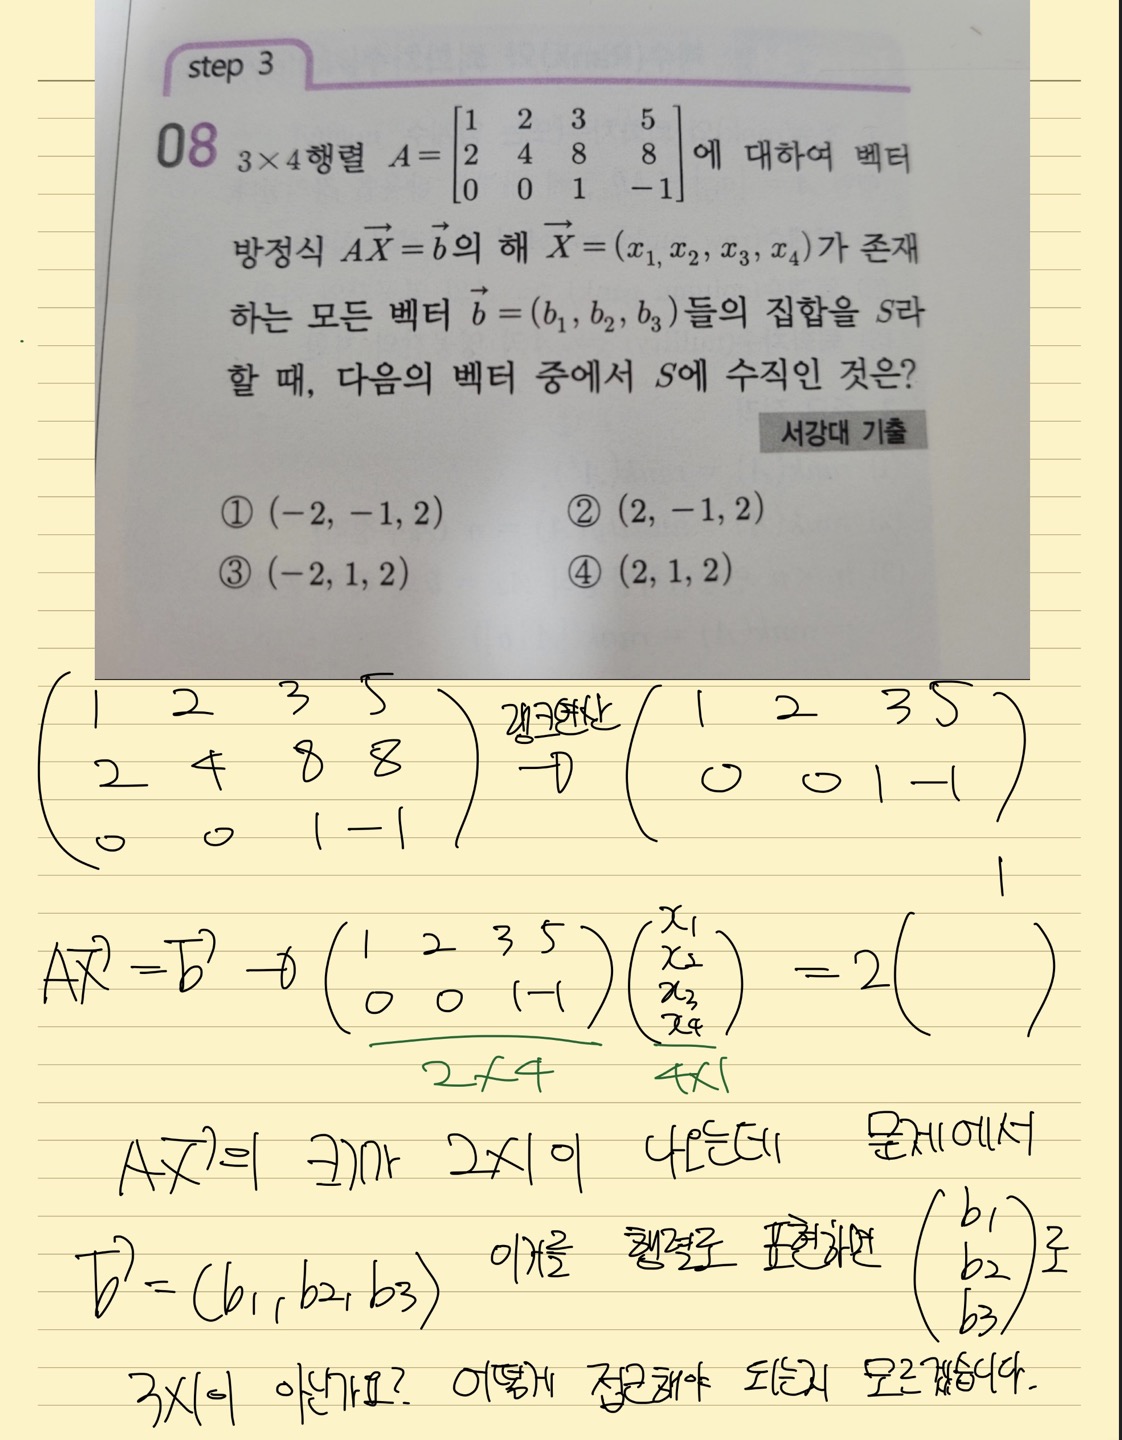 step 3
08 3×4행렬 A = [1 2 3 5
2 4 8 8
0 0 1 −1] 에 대하여 벡터
방정식 AX⃗ = b⃗의 해 X⃗ = (x₁, x₂, x₃, x₄)가 존재
하는 모든 벡터 b⃗ = (b₁, b₂, b₃)들의 집합을 S라
할 때, 다음의 벡터 중에서 S에 수직인 것은?
서강대 기출
① (−2, −1, 2) ② (2, −1, 2)
③ (−2, 1, 2) ④ (2, 1, 2)
(1 2 3 5
2 4 8 8
0 0 1 −1) 랭크연산 → (1 2 3 5
0 0 1 −1)
1
AX⃗ = b⃗ → (1 2 3 5
0 0 1 −1) (x1
x2
x3
x4) = 2( )
2×4 4×1
AX⃗의 크기가 2×1이 나오는데 문제에서
b⃗ = (b1, b2, b3) 이거를 행렬로 표현하면 (b1
b2
b3)로
3×1이 아닌가요? 어떻게 접근해야 되는지 모르겠습니다.